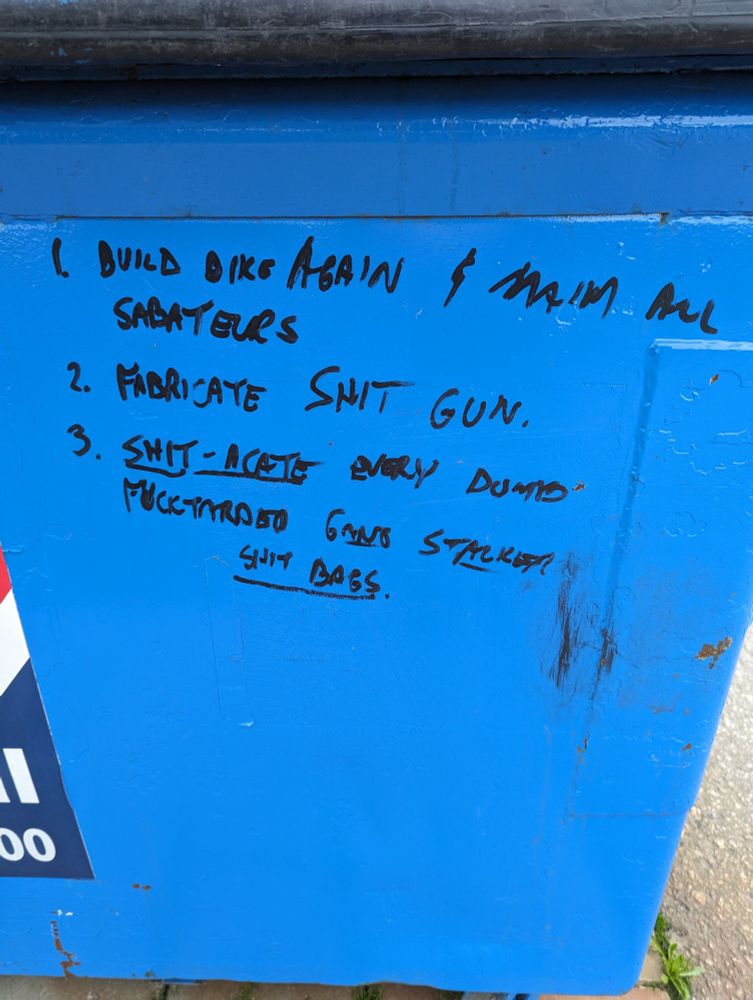 1. BUILD BIKE AGAIN & MAIM ALL
SABATEURS
2. FABRICATE SHIT GUN.
3. SHIT-ACATE EVERY DUMB
FUCKTARDED GANG STALKER
SHIT BAGS.
00